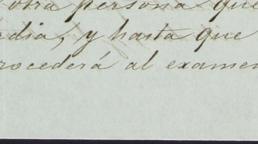 otra persona que
dia, y hasta que
rocederá al examen